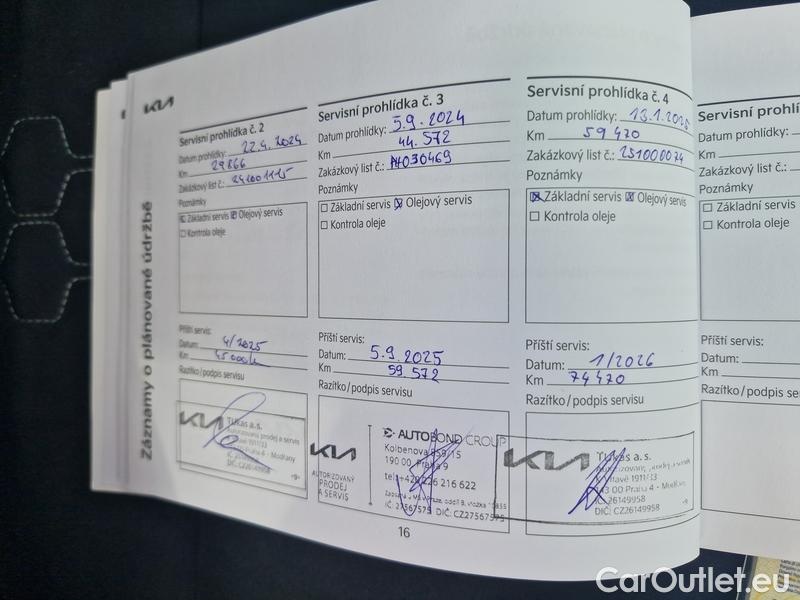 KIA
Záznamy o plánované údržbě
Servisní prohlídka č. 2
Datum prohlídky: 22.4.2024
Km 29866
Zakázkový list č.: 241001125
Poznámky
Základní servis Olejový servis
Kontrola oleje
Příští servis:
Datum: 4/2025
Km 45000k
Razítko/podpis servisu
KIA
TUkas a.s.
Autorizovaný prodej a servis
Praha 4 - Modřany
DIČ: CZ26149958
Servisní prohlídka č. 3
Datum prohlídky: 5.9.2024
Km 44.572
Zakázkový list č.: A1030469
Poznámky
Základní servis Olejový servis
Kontrola oleje
Příští servis:
Datum: 5.9.2025
Km 59572
Razítko/podpis servisu
KIA
AUTORIZOVANÝ
PRODEJ
A SERVIS
AUTOBOND GROUP
Kolbenova 859/15
190 00 Praha 9
tel: +420 226 216 622
IČ: 27567575 DIČ: CZ27567575
Servisní prohlídka č. 4
Datum prohlídky: 13.1.2025
Km 59 470
Zakázkový list č.: 251000074
Poznámky
Základní servis Olejový servis
Kontrola oleje
Příští servis:
Datum: 1/2026
Km 74470
Razítko/podpis servisu
KIA
TUkas a.s.
143 00 Praha 4 - Modřany
26149958
DIČ: CZ26149958
Servisní prohlí
Datum prohlídky:
Km
Zakázkový list č.:
Poznámky
Základní servis
Kontrola oleje
Příští servis:
Datum:
Km
Razítko/podpis se
16
CarOutlet.eu